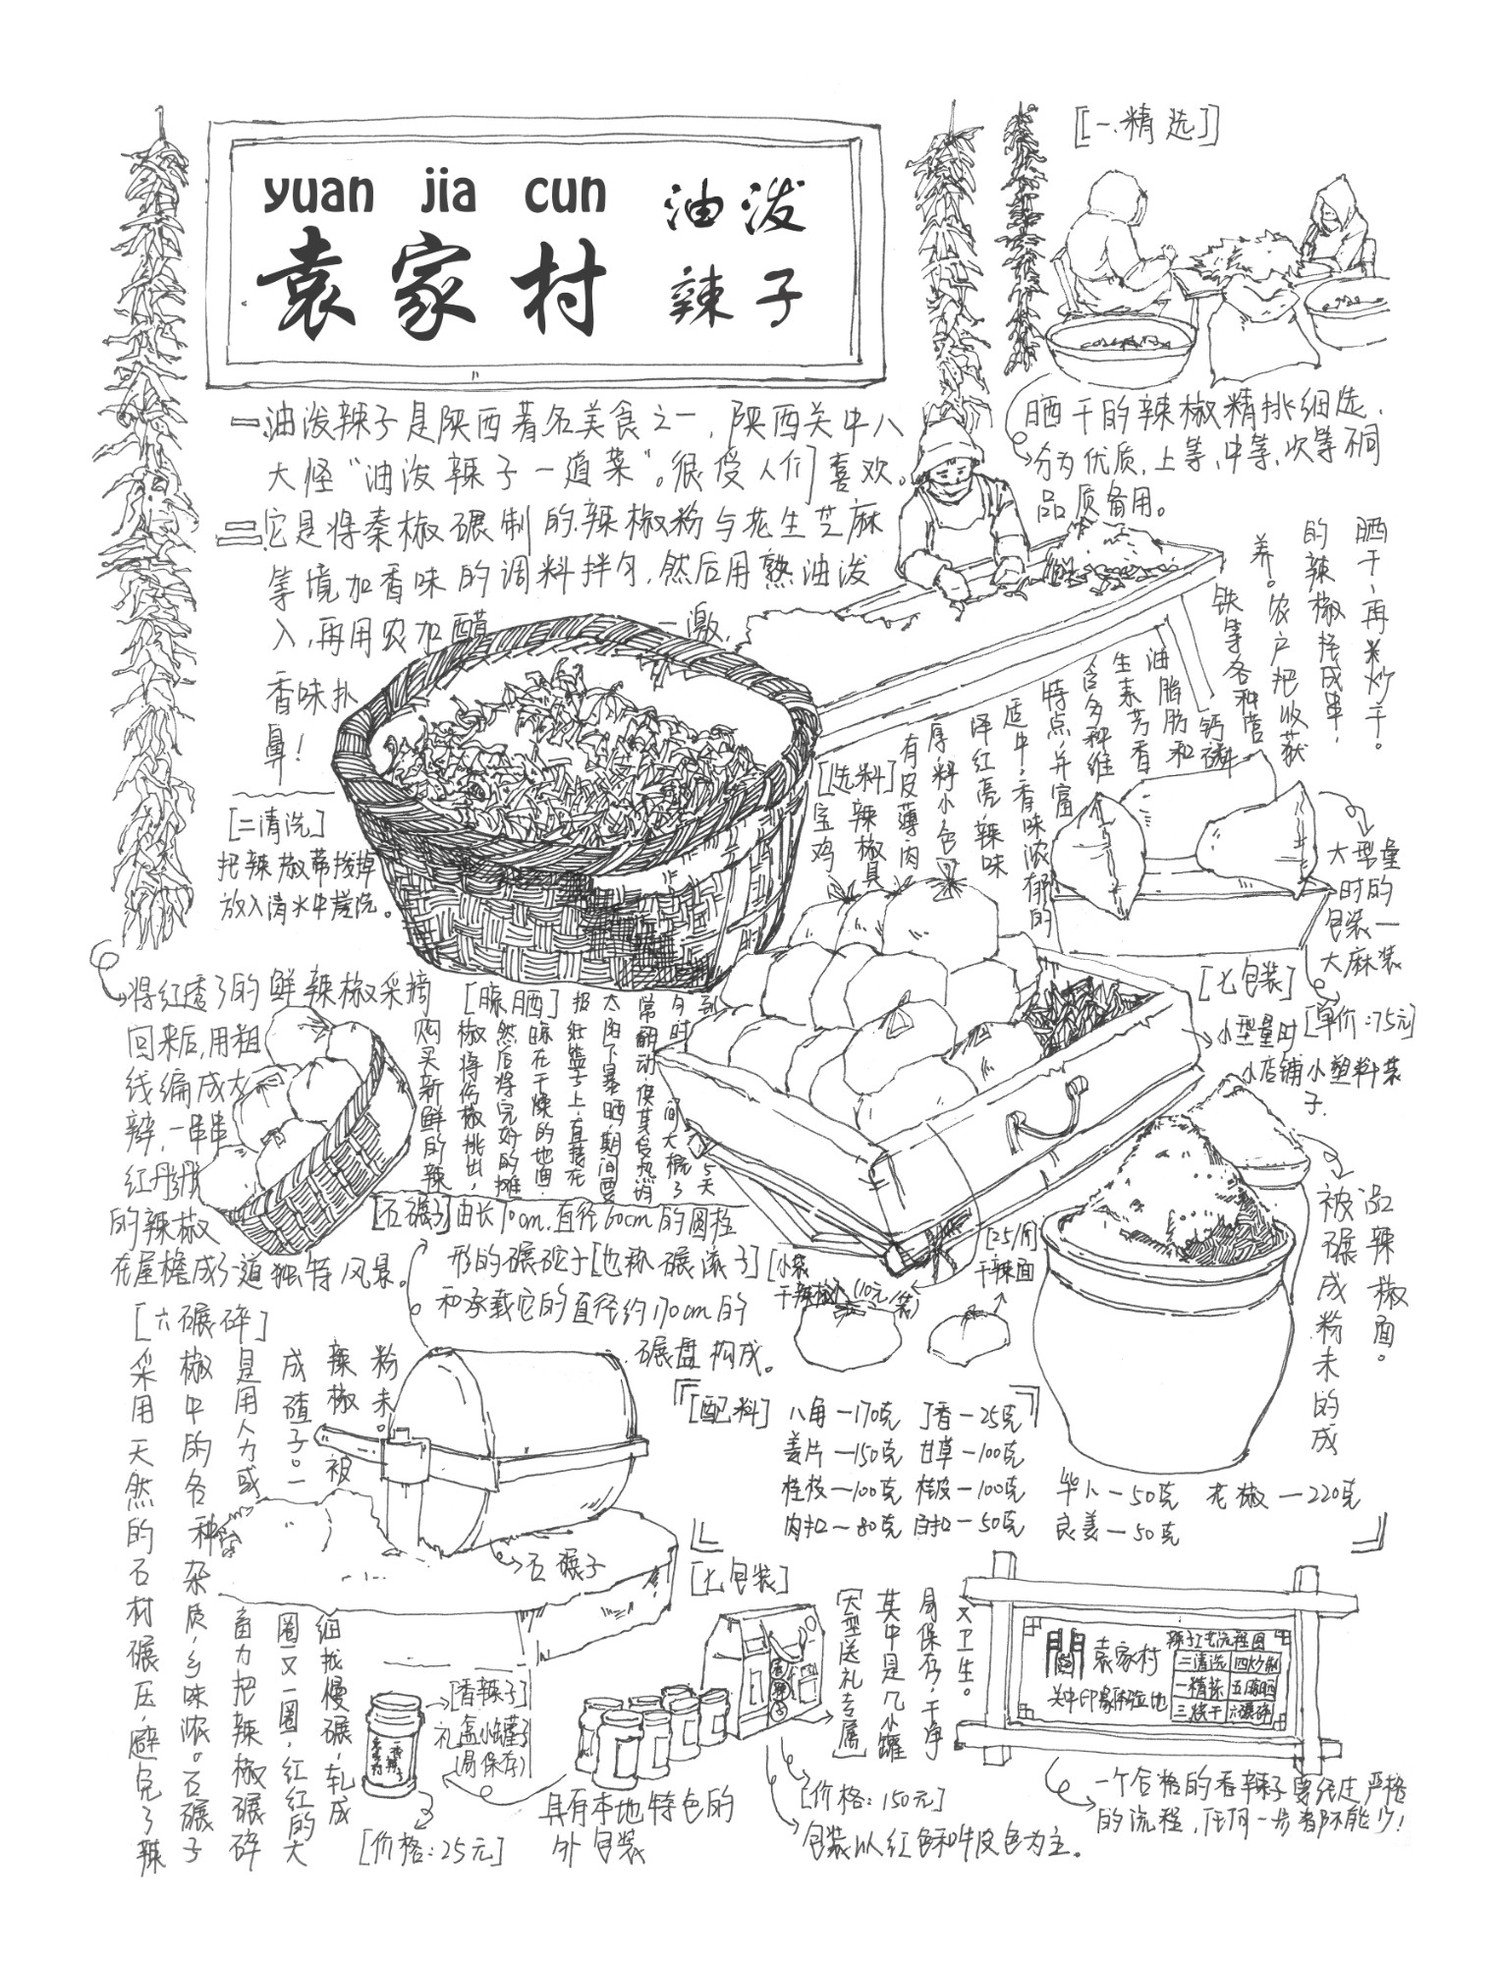 yuan jia cun
袁家村
油泼
辣子
[一.精选]
一.油泼辣子是陕西著名美食之一，陕西关中八
大怪“油泼辣子一道菜”。很受人们喜欢。
二.它是将秦椒碾制的辣椒粉与花生芝麻
等增加香味的调料拌匀，然后用熟油泼
入，再用农加醋一激，
香味扑
鼻！
晒干的辣椒精挑细选，
分为优质，上等，中等，次等不同
品质备用。
晒干、再炒干。
的辣椒拴成串，
养。农户把收获
铁等各种营
钙磷
油脂肪和
生素芳香
含多种维
特点，并富
适中，香味浓郁的
泽红亮，辣味
厚，料小色
有皮薄，肉
辣椒具
宝鸡
[选料]
[二清洗]
把辣椒蒂拨掉
放入清水中搓洗。
将红透了的鲜辣椒采摘
回来后，用粗
线编成大
辫，一串串
红彤彤
的辣椒
在屋檐成了一道独特风景。
[晾晒]
购买新鲜的辣
椒将伤椒挑出，
然后将完好的摊
晾在干燥的地面，
太阳下暴晒，期间要
常翻动，使其
大型量
时的
包装一
大麻装
[单价:75元]
[七包装]
小型量时
小店铺小塑料装
子.
[石碾子]由长70cm.直径60cm的圆柱
形的碾砣子[也称碾滚子]
和承载它的直径约170cm的
碾盘构成。
[小袋
干辣椒](10元/袋)
[25/斤]
干辣面
被碾成粉末的成
品辣椒面。
[六碾碎]
采用天然的石材碾压，避免了辣
椒中的各种杂质，乡味浓。石碾子
是用人力或畜力把辣椒碾碎
成碴子。一圈又一圈，红红的大
辣椒被细找慢碾，轧成
粉末。
石碾子
[配料]
八角一170克 丁香一25克
姜片一150克 甘草一100克
桂枝一100克 桂皮一100克
肉扣一80克 白扣一50克
毕卜一50克 花椒一220克
良姜一50克
[七包装]
[大型送礼专属]
其中是几小罐
易保存，干净
又卫生。
[香辣子]
礼盒小罐子
(易保存)
[价格:25元]
具有本地特色的
外包装
[价格:150元]
包装以红色和牛皮色为主。
袁家村
关中印象体验地
辣子工艺流程图
二清洗 四炒制
一精拣 五晾晒
三烘干 六碾碎
一个合格的香辣子要经过严格
的流程，任何一步都不能少！